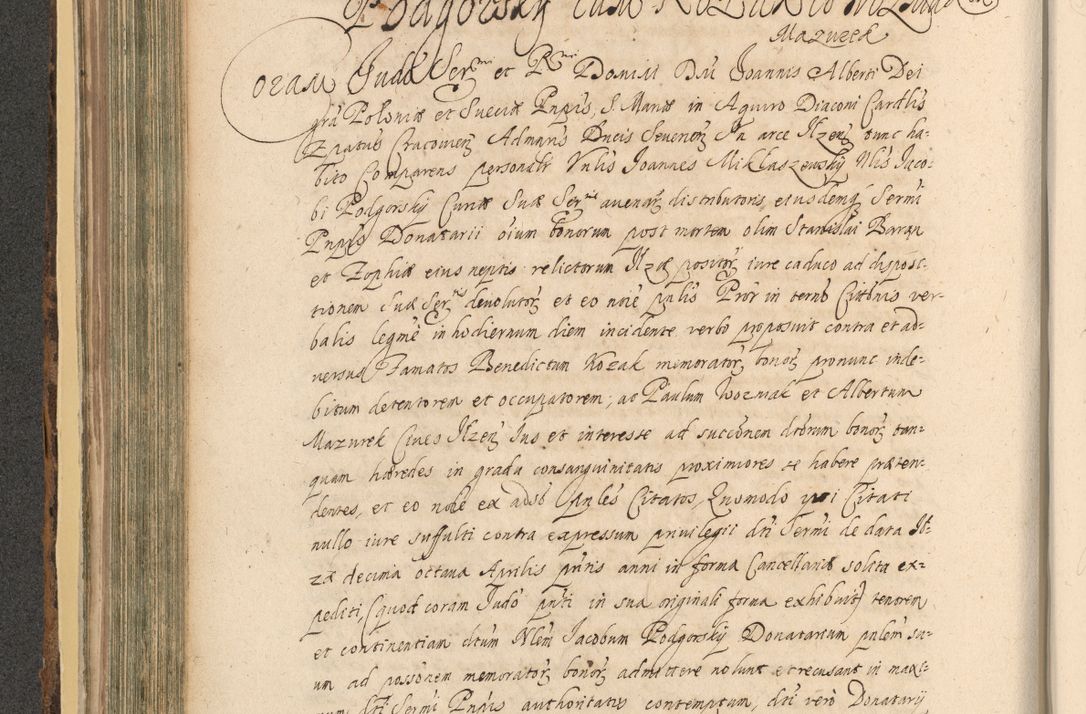 Podgorsky cum Kozak
Mazurek
Coram Judô Ser.mi et R.mi Domini Dñi Joannis Alberti Dei
grã Poloniæ et Sueciæ Pnpis, S. Mariæ in Aquiro Diaconi Cardlis
Epatus Cracovien̄ Admaris Ducis Severien̄ In arce Ilzen̄ tunc ha-
bito Comparens personalr Vnlis Joannes Miklaszewsky Nlis Jaco-
bi Podgorsky Curiæ Suæ Ser.mis avenarz distributoris, eiusdemq Sermi
Pnpis Donatarii oium bonorum post mortem olim Stanislai Baran
et Zophiæ eius neptis relictorum Ilzæ positorz iure caduco ad disposi-
tionem Suæ Ser.tis devolutorz et eo noie pnlis Pror in termo Cittonis ver-
balis legme in hodiernum diem incidente verbo proposuit contra et ad-
versus Famatos Benedictum Kozak memoratorz bonorz pronunc inde-
bitum detentorem et occupatorem; ac Paulum Wozniak et Albertum
Mazurek Cives Ilzen̄ Jus et interesse ad succonem dctorum bonorz tan-
quam hæredes in gradu consanguinitatis proximiores se habere præten-
dentes, et eo noie ex adso pnles Citatos, Quomodo ipsi Citati
nullo iure suffulti contra expressum privilegii dti Sermi de data Il-
zæ decima octava Aprilis pntis anni in forma Cancellariæ solita ex-
pediti, (quod coram Judô pnti in sua originali forma exhibuit) tenorem
et continentiam dtum Nlem Jacobum Podgorsky Donatarium pnlem su-
um ad possonem memoratorz bonorz admittere nolunt et recusant in maxi-
mum dti Sermi Pnpis authoritatis contemptum, dti vero Donatarij